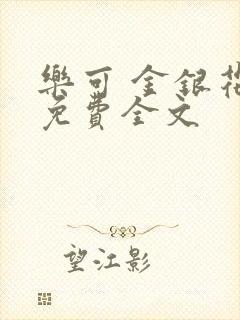 樂可 金銀花
免費全文
望江影